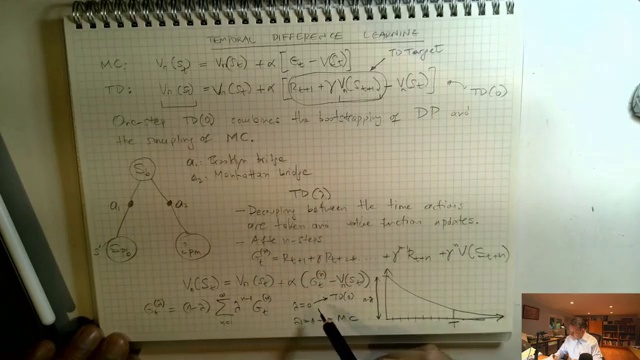 TEMPORAL DIFFERENCE LEARNING
MC: Vπ(St) = Vπ(St) + α [Gt − V(St)]
TD Target
TD: Vπ(St) = Vπ(St) + α [Rt+1 + γ Vπ(St+1) − Vπ(St)] TD(0)
One-step TD(0) combines the bootstrapping of DP and
the sampling of MC.
S6
a1: Brooklyn bridge
a2: Manhattan bridge
a1 a2
TD(λ)
- Decoupling between the time actions
are taken and value function updates.
- After n-steps
Gt(n) = Rt+1 + γ Rt+2 + γⁿ⁻¹ Rt+n + γⁿ V(St+n)
Vπ(St) = Vπ(St) + α (Gt(n) − Vπ(St))
Gt(λ) = (1-λ) ∑ λⁿ⁻¹ Gt(n)
n=1
λ=0 → TD(0)
MC
T